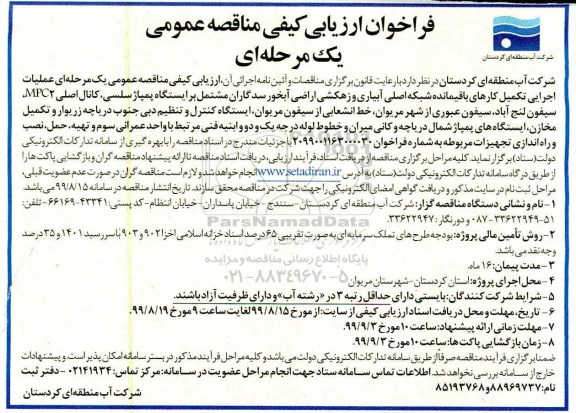 فراخوان ارزیابی کیفی مناقصه عمومی
یک مرحله‌ای
شرکت آب منطقه‌ای کردستان
شرکت آب منطقه‌ای کردستان در نظر دارد با رعایت قانون برگزاری مناقصات و آئین نامه اجرائی آن، ارزیابی کیفی مناقصه عمومی یک مرحله‌ای عملیات
اجرایی تکمیل کارهای باقیمانده شبکه اصلی آبیاری و زهکشی اراضی آبخور سد گاران مشتمل بر ایستگاه پمپاژ سلسی، کانال اصلی MPC2،
سیفون لنج آباد، سیفون عبوری از شهر مریوان، خط انشعابی از سیفون مریوان، ایستگاه کنترل و تنظیم دبی جنوب دریاچه زریوار و تکمیل
مخازن، ایستگاه‌های پمپاژ شمال دریاچه و کانی میران و خط لوله درجه یک و دو و ابنیه فنی مرتبط با واحد عمرانی سوم و تهیه، حمل، نصب
و راه اندازی تجهیزات مربوطه به شماره فراخوان ۲۰۹۹۰۰۱۱۶۳۰۰۰۰۳۰ با جزئیات مندرج در اسناد مناقصه را با بهره گیری از سامانه تدارکات الکترونیکی
دولت (ستاد) برگزار نماید. کلیه مراحل برگزاری مناقصه از دریافت اسناد، فرآیند ارزیابی، دریافت اسناد مناقصه تا ارائه پیشنهاد مناقصه گران و بازگشایی پاکت‌ها را
از طریق درگاه سامانه تدارکات الکترونیکی دولت (ستاد) به آدرس www.setadiran.ir انجام خواهد شد و لازم است مناقصه گران در صورت عدم عضویت قبلی،
مراحل ثبت نام در سایت مذکور و دریافت گواهی امضای الکترونیکی را جهت شرکت در مناقصه محقق سازند. تاریخ انتشار مناقصه در سامانه ۹۹/۸/۱۵ می باشد.
۱- نام و نشانی دستگاه مناقصه گزار: شرکت آب منطقه‌ای کردستان - سنندج - خیابان پاسداران - خیابان انتظام - کد پستی: ۴۳۳۴۱-۶۶۱۶۹ - تلفن:
۵۱-۳۳۶۲۲۹۴۹-۰۸۷ و دورنگار: ۳۳۶۲۲۹۴۷
۲- روش تأمین مالی پروژه: بودجه طرح‌های تملک سرمایه‌ای به صورت تقریبی ۶۵ درصد اسناد خزانه اسلامی اخزا ۹۰۲ و ۹۰۳ با سررسید ۱۴۰۱ و ۳۵ درصد
وجه نقد می باشد.
۳- مدت پیمان: ۱۶ ماه.
۴- محل اجرای پروژه: استان کردستان - شهرستان مریوان
۵- شرایط شرکت کنندگان: بایستی دارای حداقل رتبه ۳ در «رشته آب» و دارای ظرفیت آزاد باشند.
۶- تاریخ، مهلت و محل دریافت اسناد ارزیابی کیفی از سایت: از مورخ ۹۹/۸/۱۵ لغایت ساعت ۹ مورخ ۹۹/۸/۱۹.
۷- مهلت زمانی ارائه پیشنهاد: ساعت ۱۰ مورخ ۹۹/۹/۳.
۸- زمان بازگشایی پاکت‌ها: ساعت ۱۰ مورخ ۹۹/۹/۳.
ضمنا برگزاری فرآیند مناقصه صرفا از طریق سامانه تدارکات الکترونیکی دولت می باشد و کلیه مراحل فرآیند مذکور در بستر سامانه امکان پذیر است و پیشنهادات
خارج از سامانه بررسی نخواهد شد. اطلاعات تماس سامانه ستاد جهت انجام مراحل عضویت در سامانه: مرکز تماس: ۰۲۱۴۱۹۳۴ - دفتر ثبت
نام: ۸۸۹۶۹۷۳۷ و ۸۵۱۹۳۷۶۸
شرکت آب منطقه‌ای کردستان
ParsNamadData
پایگاه اطلاع رسانی مناقصه و مزایده
۰۲۱-۸۸۳۴۹۶۷۰-۵